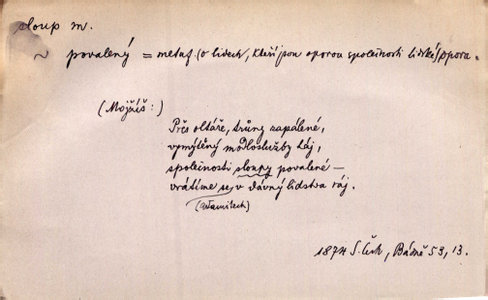 sloup m.
~ povalený = metaf. (o lidech, kteří jsou oporou společnosti lidské) opora.
(Mojžíš:)
Přes oltáře, trůny zapálené,
vymýtěný modloslužby háj,
společnosti sloupy povalené —
vrátíme se v dávný lidstva ráj.
(adamitech)
1874 S. Čech, Básně 53, 13.